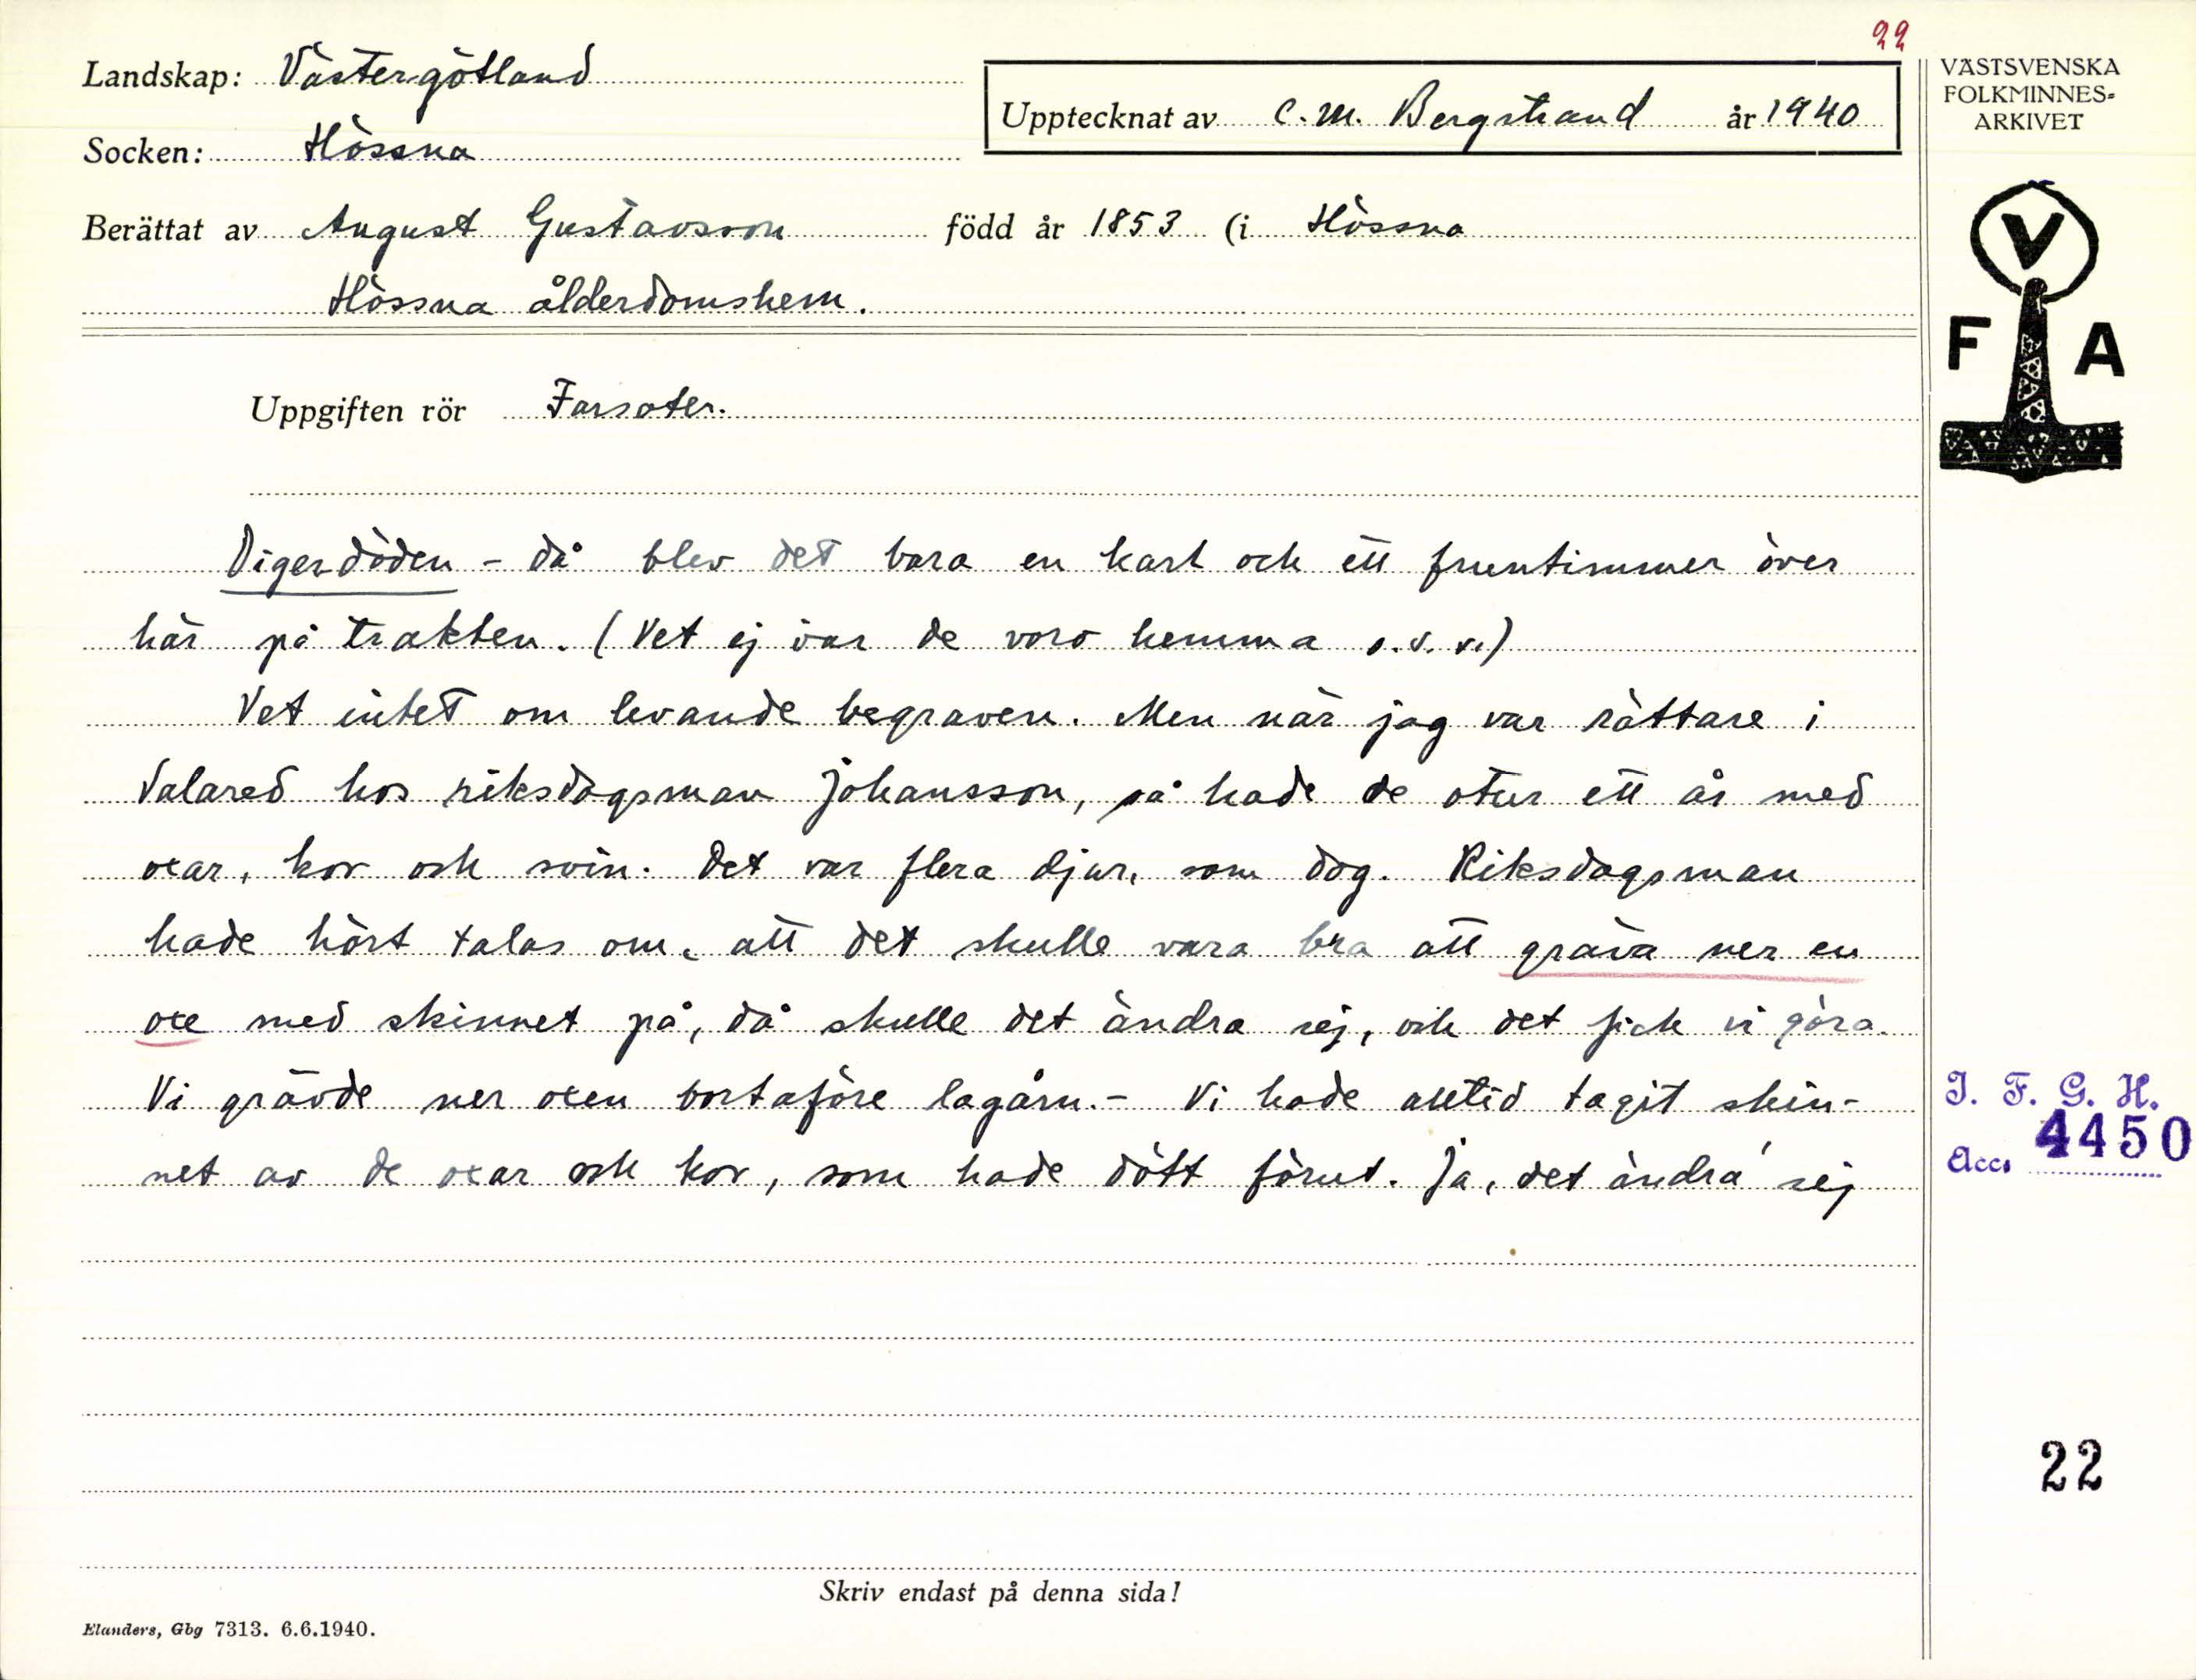 22
Landskap: Västergötland
Upptecknat av C. M. Bergstrand år 1940
Socken: Hössna
Berättat av August Gustavsson född år 1853 (i Hössna
Hössna ålderdomshem.
Uppgiften rör Farsoter.
Digerdöden - då blev det bara en karl och ett fruntimmer över
här på trakten. (Vet ej var de voro hemma o.s.v.)
Vet intet om levande begraven. Men när jag var rättare i
Valared hos riksdagsman Johansson, så hade de otur ett år med
oxar, kor och svin. Det var flera djur, som dog. Riksdagsman
hade hört talas om, att det skulle vara bra att gräva ner en
oxe med skinnet på, då skulle det ändra sej, och det fick vi göra.
Vi grävde ner oxen bortaföre lagårn. - Vi hade alltid tagit skin-
net av de oxar och kor, som hade dött förut. Ja, det ändra' sej
Skriv endast på denna sida!
Elanders, Gbg 7313. 6.6.1940.
VÄSTSVENSKA
FOLKMINNES=
ARKIVET
V
F A
I. F. G. H.
Acc. 4450
22